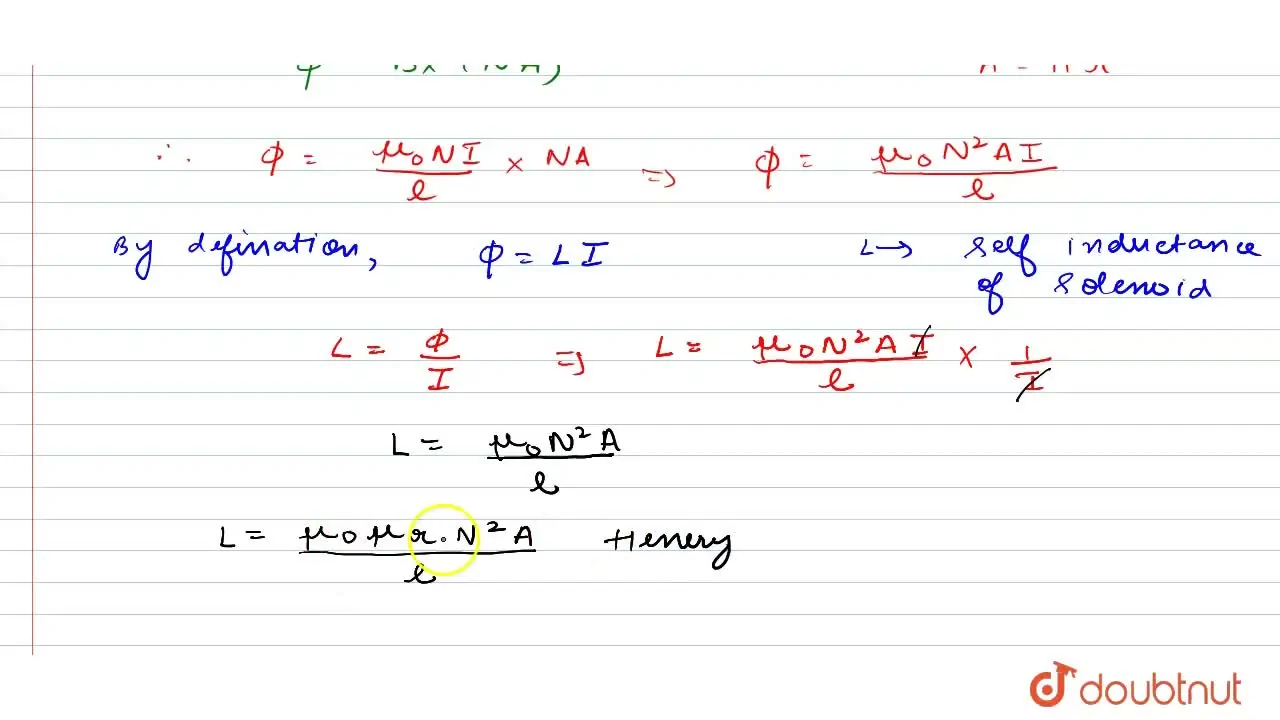 ∴ φ = μ₀NI/l × NA ⇒ φ = μ₀N²AI/l
By defination, φ = LI L → self inductance
of solenoid
L = φ/I ⇒ L = μ₀N²AI/l × 1/I
L = μ₀N²A/l
L = μ₀μr.N²A/l Henery
doubtnut